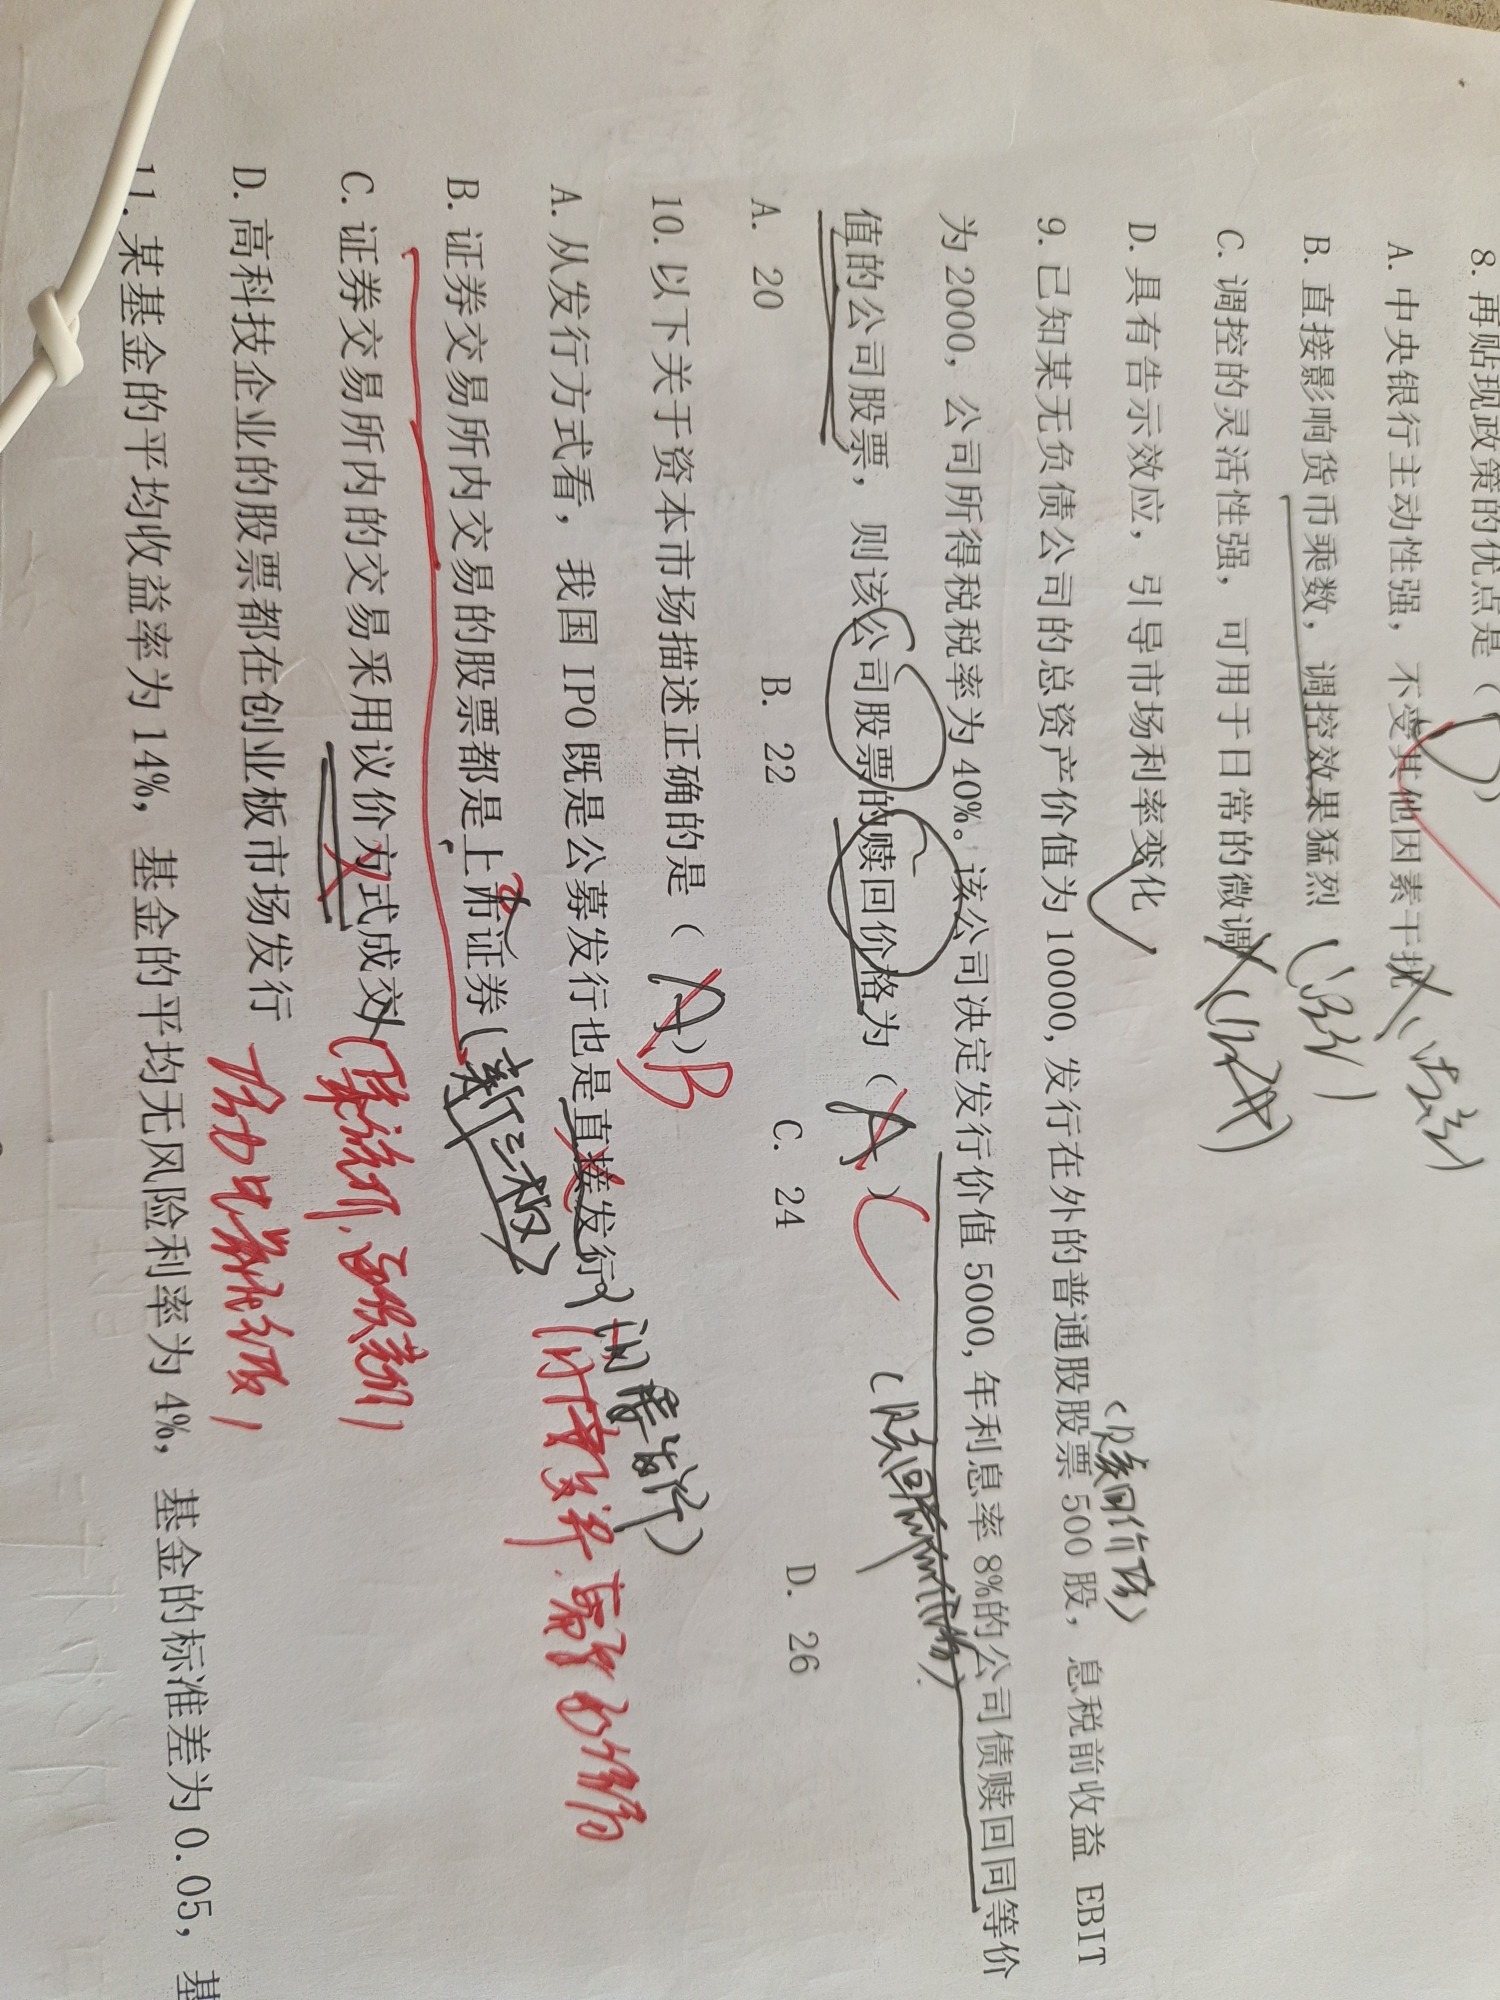 8. 再贴现政策的优点是（
A. 中央银行主动性强，不受其他因素干扰
B. 直接影响货币乘数，调控效果猛烈
C. 调控的灵活性强，可用于日常的微调
D. 具有告示效应，引导市场利率变化
（赎回价格）
9. 已知某无负债公司的总资产价值为 10000, 发行在外的普通股股票 500 股，息税前收益 EBIT
为 2000, 公司所得税税率为 40%。该公司决定发行价值 5000, 年利息率 8%的公司债赎回同等价
值的公司股票，则该公司股票的赎回价格为（A）C
A. 20 B. 22 C. 24 D. 26
10. 以下关于资本市场描述正确的是（A）B
A. 从发行方式看，我国 IPO 既是公募发行也是直接发行
B. 证券交易所内交易的股票都是上市证券（新三板）
C. 证券交易所内的交易采用议价方式成交
D. 高科技企业的股票都在创业板市场发行
11. 某基金的平均收益率为 14%, 基金的平均无风险利率为 4%, 基金的标准差为 0.05, 基